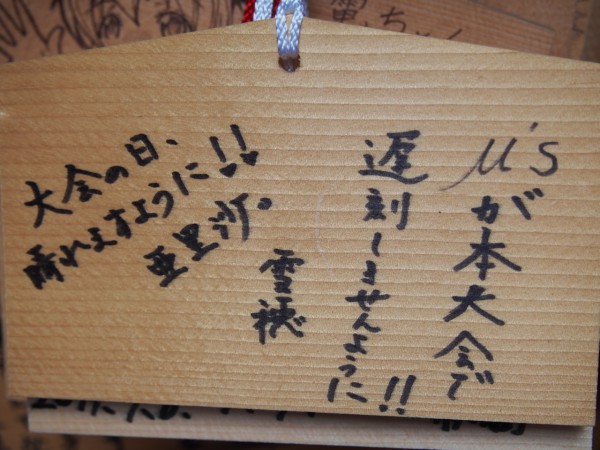 μ'sが本大会で
遅刻しませんように!!
雪穂
大会の日、
晴れますように!!
亜里沙。